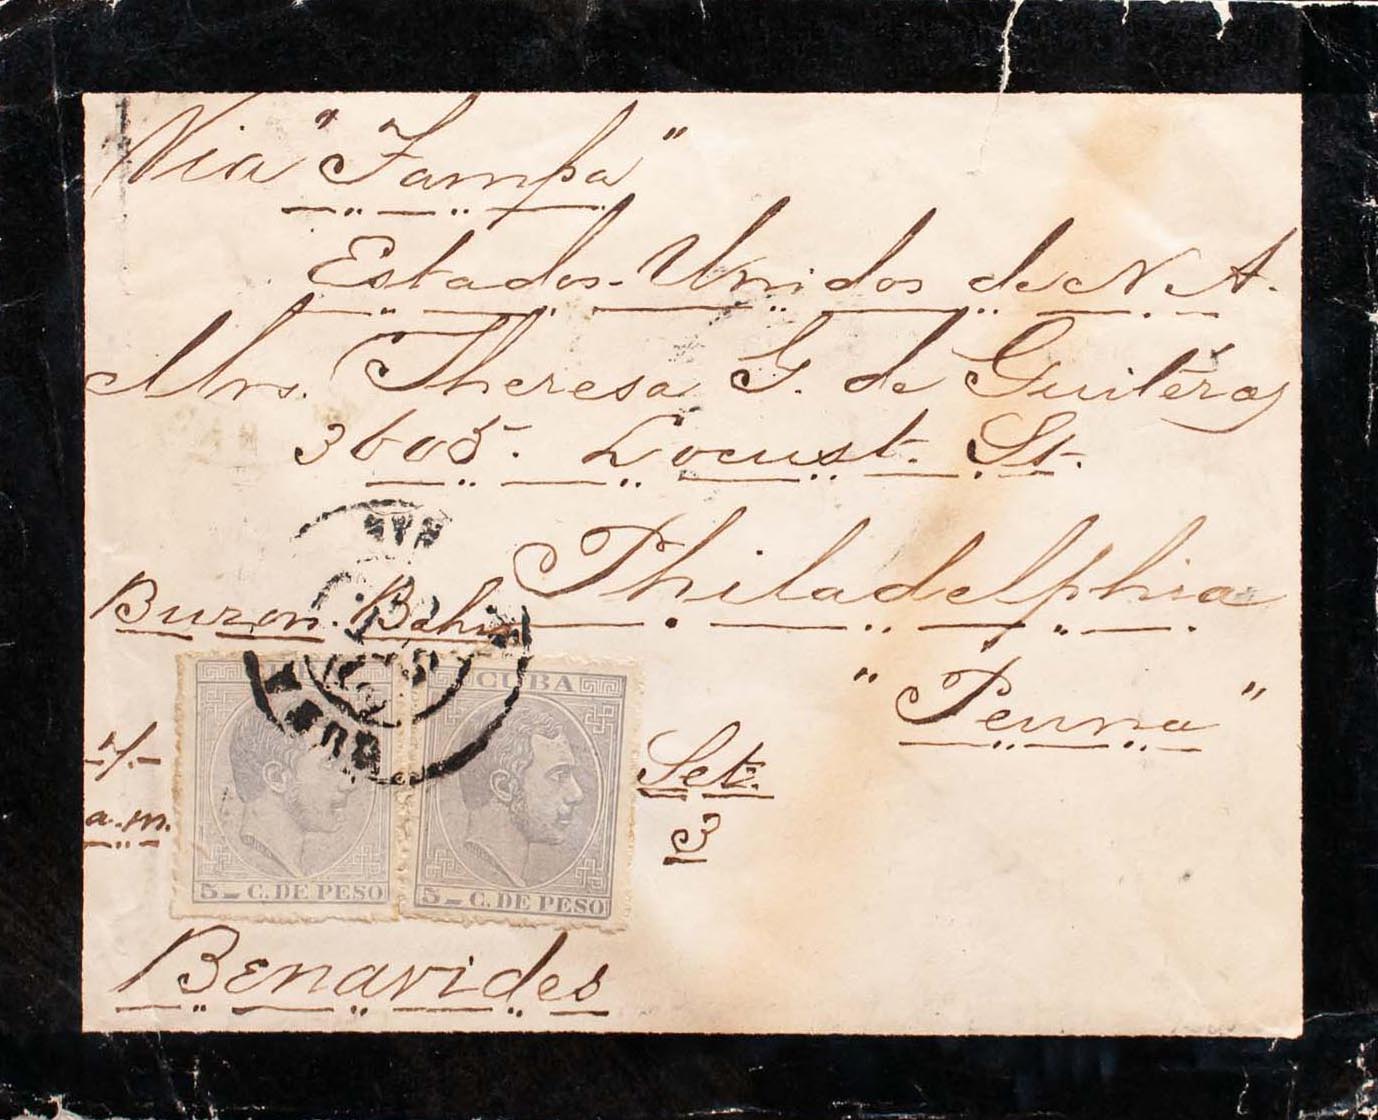 Via "Tampa"
Estados-Unidos de N. A.
Mrs. Theresa G. de Guitéras
3605. Locust. St.
Philadelphia
"Penna"
Buzon. Bahia
CUBA
7.
a.m.
Set.
3
5 C. DE PESO
5 C. DE PESO
Benavides